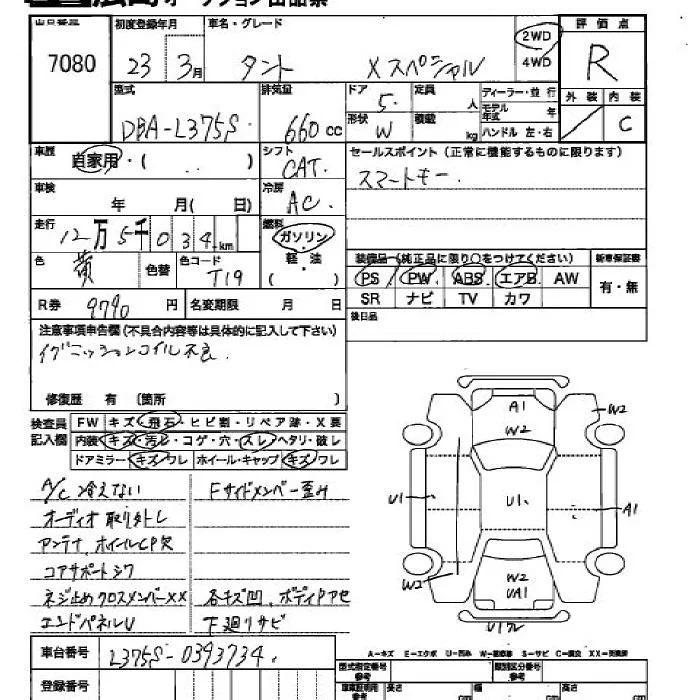 オークション出品票
出品番号 初度登録年月 車名・グレード 2WD 4WD 評価点
7080 23 3月 タント Xスペシャル R
型式 排気量 ドア 定員 人 ディーラー・並行 外装 内装
DBA-L375S 660cc 5 モデル年式 年 C
形状 W 積載 kg ハンドル 左・右
車歴 自家用・( ) シフト CAT. セールスポイント (正常に機能するものに限ります)
スマートキー.
車検 年 月( 日) 冷房 AC.
走行 12万5千034km 燃料 ガソリン・軽・油 ( )
色 黄 色替 色コード T19
装備品 (純正品に限り○をつけてください) 新車保証書
PS PW ABS エアB AW 有・無
SR ナビ TV カワ
R券 9790円 名変期限 月 日 後日品
注意事項申告欄 (不具合内容等は具体的に記入して下さい)
イグニッションコイル不良.
修復歴 有 〔箇所 〕
検査員記入欄 FW キズ・飛石・ヒビ割・リペア跡・X要
内装 キズ・汚レ・コゲ・穴・スレ・ヘタリ・破レ
ドアミラー キズ・ワレ ホイール・キャップ キズ・ワレ
A/C冷えない Fサイドメンバー歪み
オーディオ取り外し
アンテナ、ホイールCP欠
コアサポートシワ
ネジ止めクロスメンバーXX 各キズ凹、ボディPアセ
エンドパネルU 下廻りサビ
A1
W2
W2
U1
U1.
A1
W2
W2
UA1
U1ワレ
A-キズ E-エクボ U-凹み W-補修跡 S-サビ C-腐食 XX-交換済
車台番号 L375S-0393734.
登録番号
型式指定番号 参考 類別区分番号 参考
長さ cm 幅 cm 高さ cm